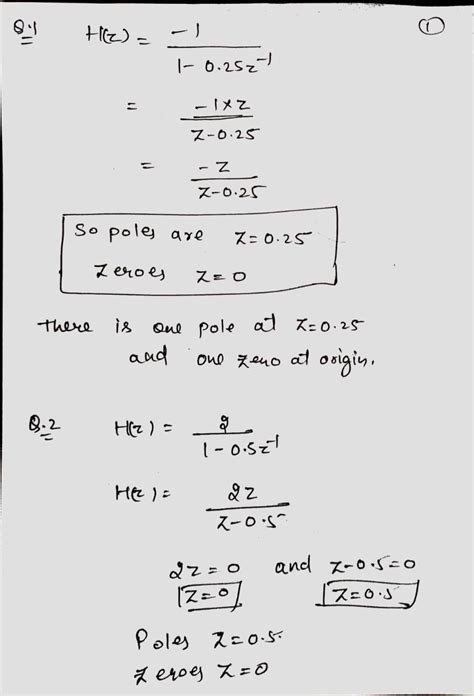 Q.1 H(z) = -1 / (1 - 0.25z^-1) ①
= -1×z / (z-0.25)
= -z / (z-0.25)
So poles are z=0.25
Zeroes z=0
there is one pole at z=0.25
and one zero at origin.
Q.2 H(z) = 2 / (1-0.5z^-1)
H(z) = 2z / (z-0.5)
2z=0 and z-0.5=0
z=0 z=0.5
Poles z=0.5
Zeroes z=0